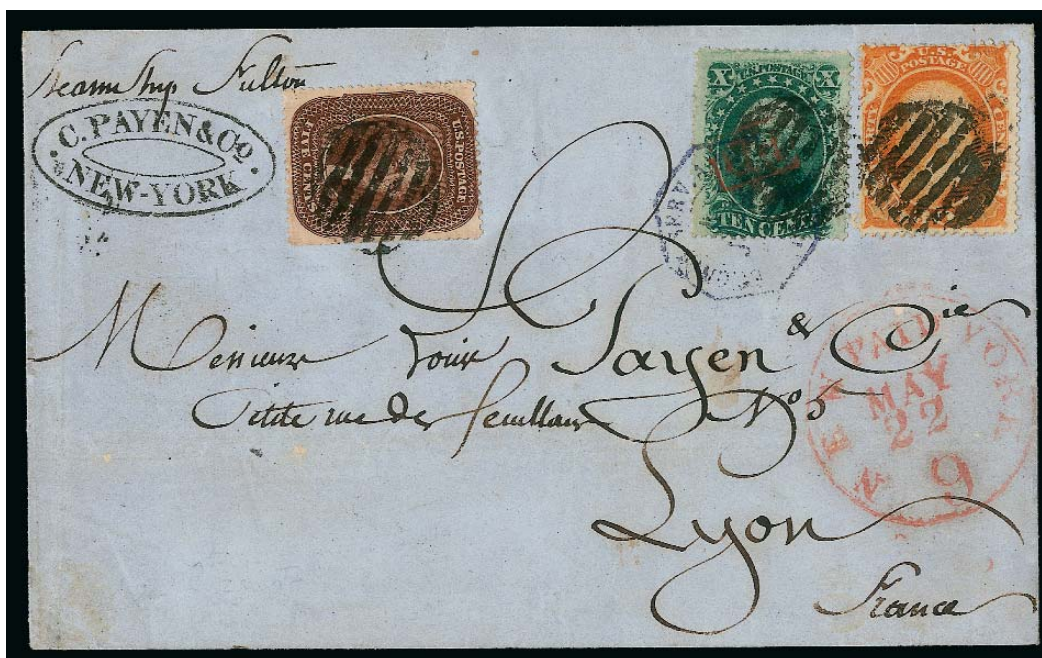 Steam Ship Fulton
C. PAYEN & Co
NEW-YORK
U.S. POSTAGE
FIVE CENTS
X U.S. POSTAGE X
TEN CENTS
U.S. POSTAGE
Messieurs Louis Payen & Cie
Petite rue des feuillans No 5
Lyon
France
NEW PAID YORK
MAY
22
9